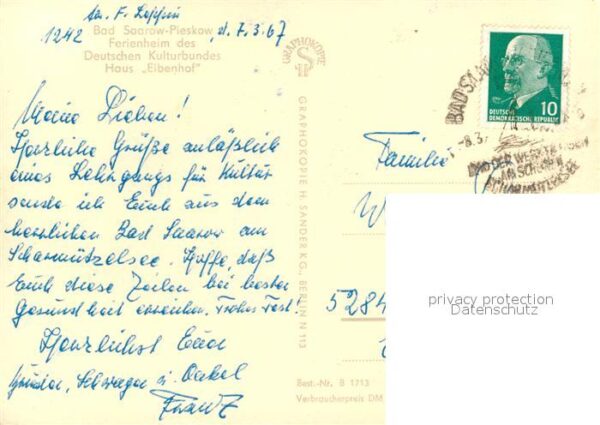 1242
d. 7.3.67
Bad Saarow-Pieskow
Ferienheim des
Deutschen Kulturbundes
Haus „Eibenhof"
Meine Lieben!
Herzliche Grüße anläßlich
eines Lehrgangs für Kultur
sende ich Euch aus dem
herrlichen Bad Saarow am
Scharmützelsee. Hoffe, daß
Euch diese Zeilen bei bester
Gesundheit erreichen. Frohes Fest!
Herzlichst Euer
Bruder, Schwager u. Onkel
Franz
GRAPHOKOPIE
GRAPHOKOPIE H. SANDER KG., BERLIN N 113
DEUTSCHE
DEMOKRATISCHE REPUBLIK
10
BAD SAAROW
-8.3.
BAD DER WERKTÄTIGEN
AM SCHÖNEN
SCHARMÜTZELSEE
Familie
5284
privacy protection
Datenschutz
Best.-Nr. B 1713
Verbraucherpreis DM